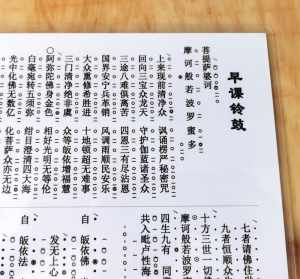 早课铃鼓
菩提萨婆诃
摩诃般若波罗蜜多
上来现前清净众 讽诵楞严秘密咒
回向三宝众龙天 守护伽蓝诸圣众
三途八难俱离苦 四恩三有尽沾恩
国界安宁兵革销 风调雨顺民安乐
大众熏修希胜进 十地顿超无难事
三门清净绝非虞 众等皈依增福慧
阿弥陀佛身金色 相好光明无等伦
白毫宛转五须弥 绀目澄清四大海
光中化佛无数亿 化菩萨众亦无边
七者请佛住世
九者恒顺众
十方三世一切
摩诃般若波
四生九有 同
共入毗卢性海
自 皈依
发无上心
自 皈依法